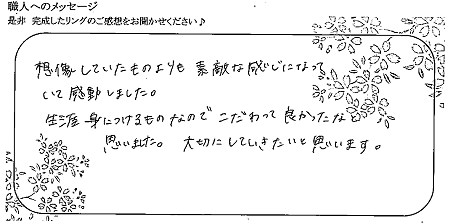 職人へのメッセージ
是非 完成したリングのご感想をお聞かせください♪
想像していたものよりも 素敵な感じになって
いて感動しました。
生涯 身につけるものなので こだわって良かったなと
思いました。大切にしていきたいと思います。